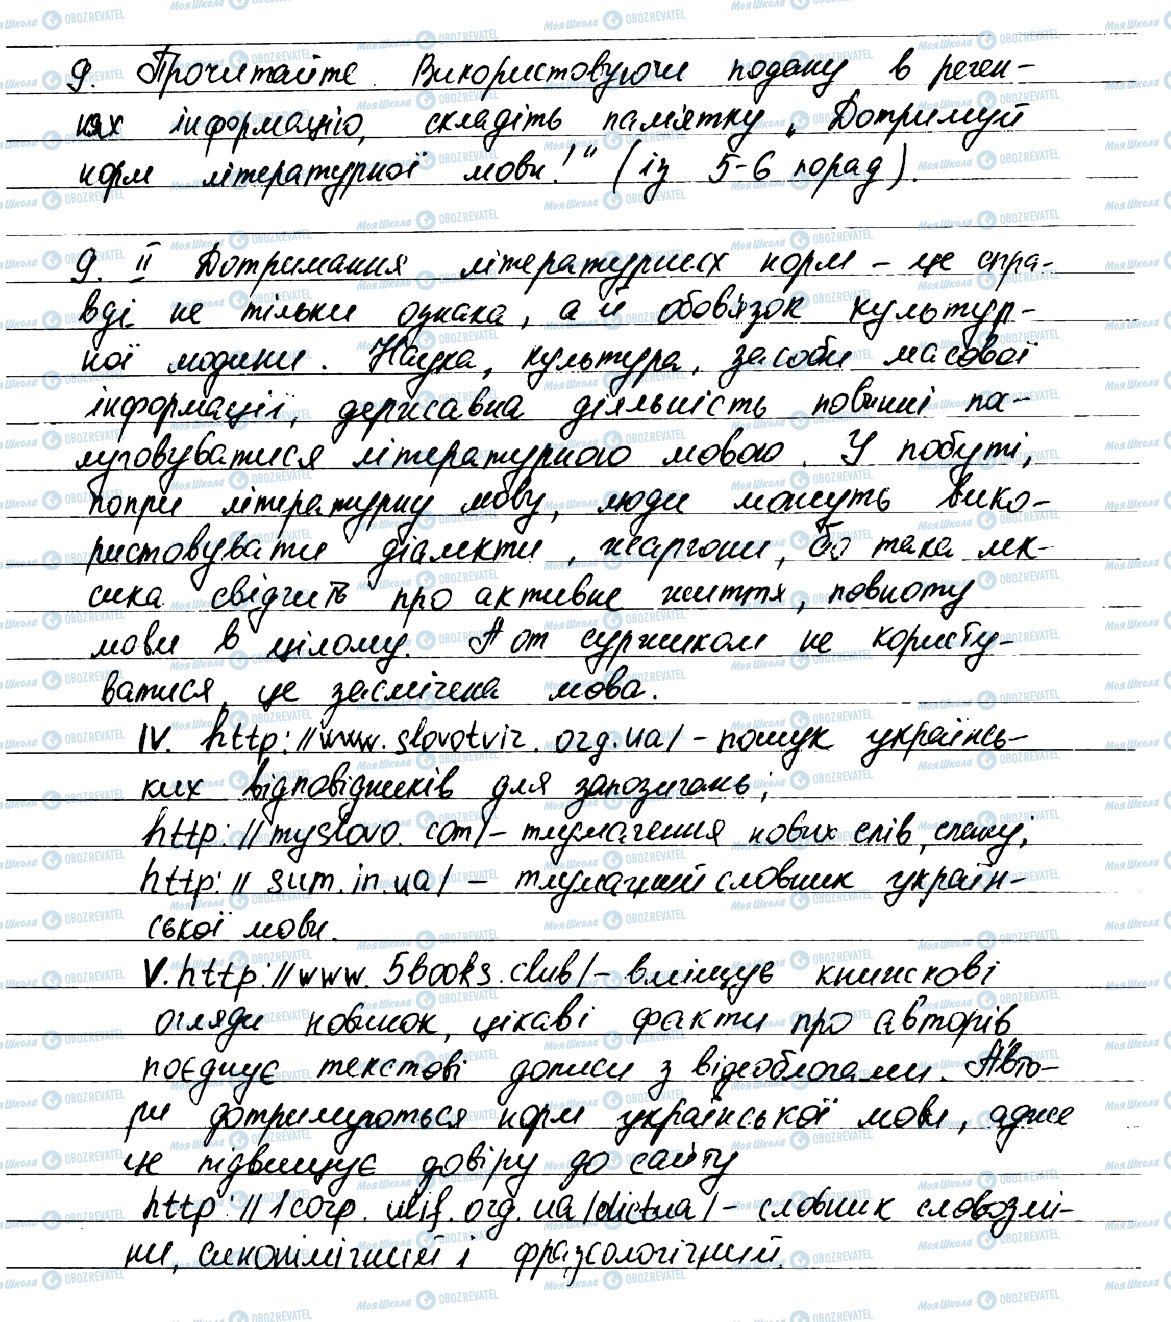 9. Прочитайте. Використовуючи подану в речен-
нях інформацію, складіть пам'ятку „Дотримуй
норм літературної мови!" (із 5-6 порад).
9. II Дотримання літературних норм - це спра-
вді не тільки ознака, а й обов'язок культур-
ної людини. Наука, культура, засоби масової
інформації, державна діяльність повинні по-
луговуватися літературною мовою. У побуті,
попри літературну мову, люди можуть вико-
ристовувати діалекти, жаргони, бо така лек-
сика свідчить про активне життя, повноту
мови в цілому. А от суржиком не користу-
ватися, це засмічена мова.
IV. http://www.slovotvir.org.ua/ - пошук українсь-
ких відповідників для запозичень;
http://myslovo.com/ - тлумачення нових слів, сленгу;
http://sum.in.ua/ - тлумачний словник україн-
ської мови.
V. http://www.5books.club/ - вміщує книжкові
огляди новинок, цікаві факти про авторів
поєднує текстові дописи з відеоблогами. Авто-
ри дотримуються норм української мови, адже
це підвищує довіру до сайту
http://lcorp.ulif.org.ua/dictua/ - словник словозмі-
ни, синонімічний і фразеологічний.